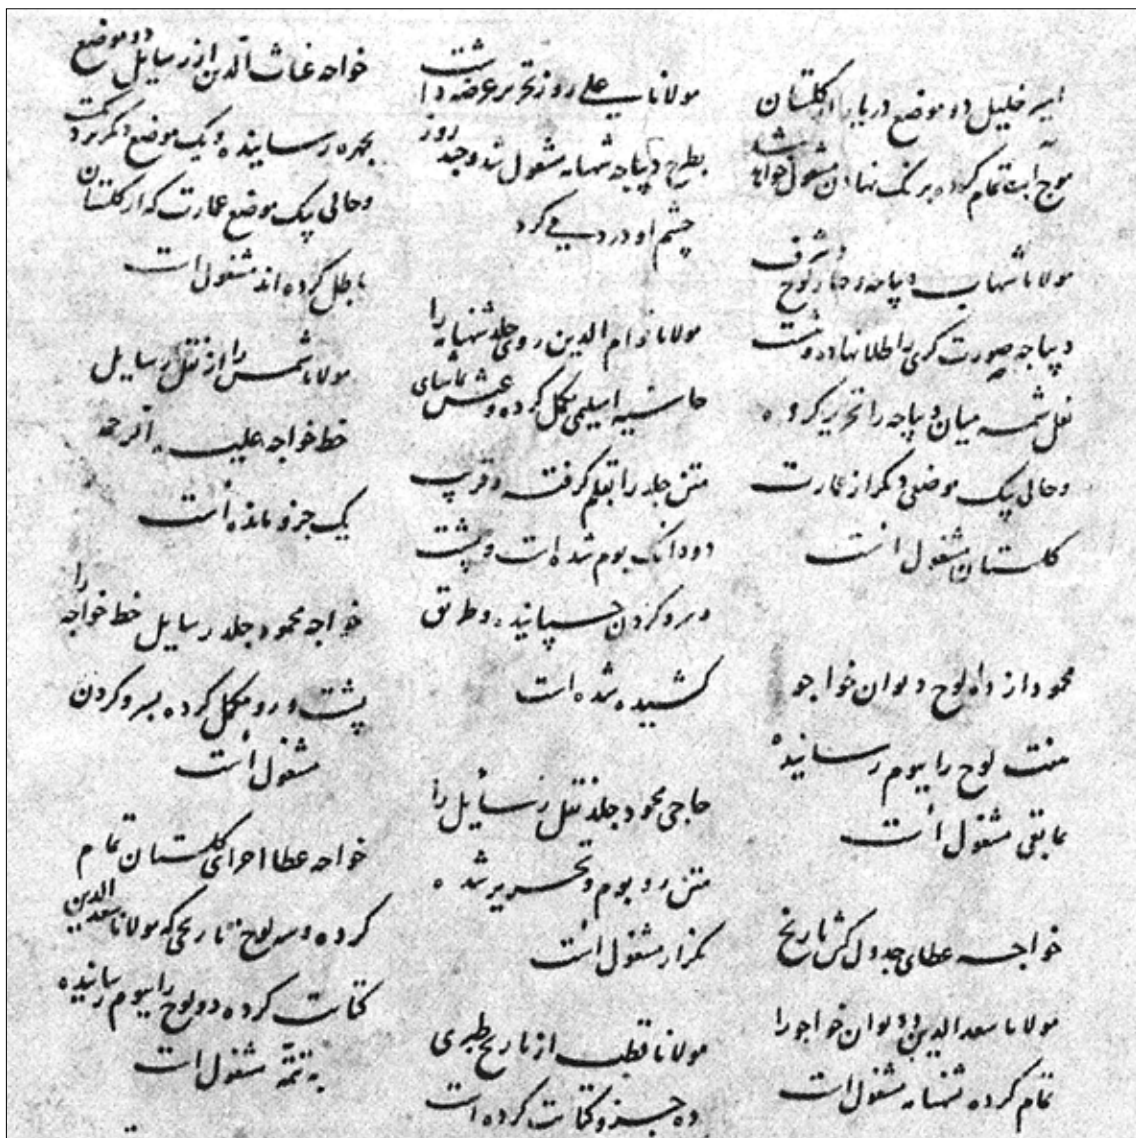 امیر خلیل دو موضع دریا بار از گلستان
موج آب تمام کرده به رنگ نهادن مشغول خواهد شد
مولانا شهاب دیباچه و چهار لوح و شرف
دیباچه صورت گری را طلا نهاده و هشت
لعل شمسه میان دیباچه را تحریر کرده
و حالی بیک موضعی دیگر از عمارت
گلستان مشغول است
محمود از ده لوح دیوان خواجو
هفت لوح را ببوم رسانیده
بمابقی مشغول است
خواجه عطای جدول کش تاریخ
مولانا سعدالدین و دیوان خواجو را
تمام کرده بشهنامه مشغول است
مولانا علی روز تحریر عرضه داشت
بطرح دیباچه شهنامه مشغول شد و چند روز
چشم او درد می کرد
مولانا قوام الدین روی جلد شهنامه را
حاشیه اسلیمی مکمل کرده و
متن جلد را بقلم گرفته و قریب
دو دانگ بوم شده است و پشت
و سر و گردن چسپانیده و طریق
کشیده شده است
حاجی محمود جلد نقل رسایل را
متن رو بوم و تحریر شده
مشغول است
مولانا قطب از تاریخ طبری
ده جزو کتابت کرده است
خواجه غیاث الدین از رسایل دو موضع
بچهره رسانیده و یک موضع دیگر
و حالی بیک موضع عمارت که از گلستان
باطل کرده اند مشغول است
مولانا شمس را از نقل رسایل
خط خواجه علیه الرحمه
یک جزو مانده است
خواجه محمود جلد رسایل خط خواجه را
پشت و رو مکمل کرده بسر و گردن
مشغول است
خواجه عطا اجزای گلستان تمام
کرده و سه لوح تاریخی که مولانا سعد الدین
کتابت کرده دو لوح را ببوم رسانیده
به تتمه مشغول است